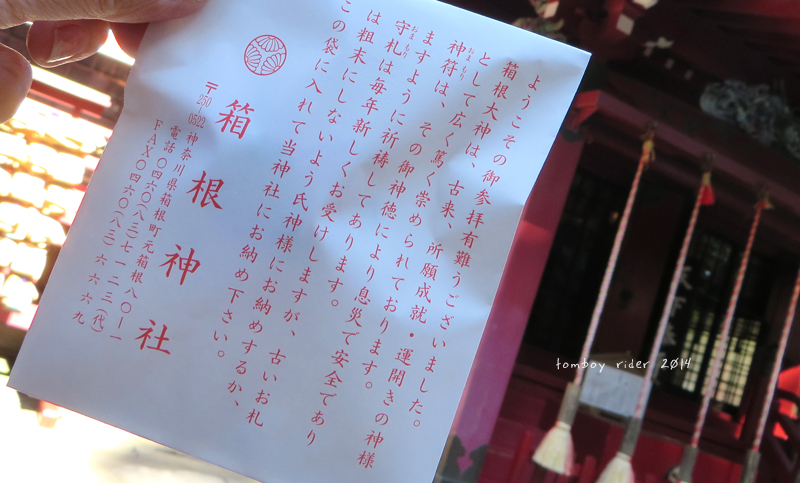 ようこその御参拝有難うございました。
箱根大神は、古来、所願成就・運開きの神様
として広く篤く崇められております。
おまもり
神符は、その御神徳により息災で安全であり
ますように祈祷してあります。
おまもり
守札は毎年新しくお受けしますが、古いお札
は粗末にしないよう氏神様にお納めするか、
この袋に入れて当神社にお納め下さい。
箱根神社
〒250-0522 神奈川県箱根町元箱根八〇ー一
電話〇四六〇(八三)七一二三(代)
FAX〇四六〇(八三)六六六九
tomboy rider 2014